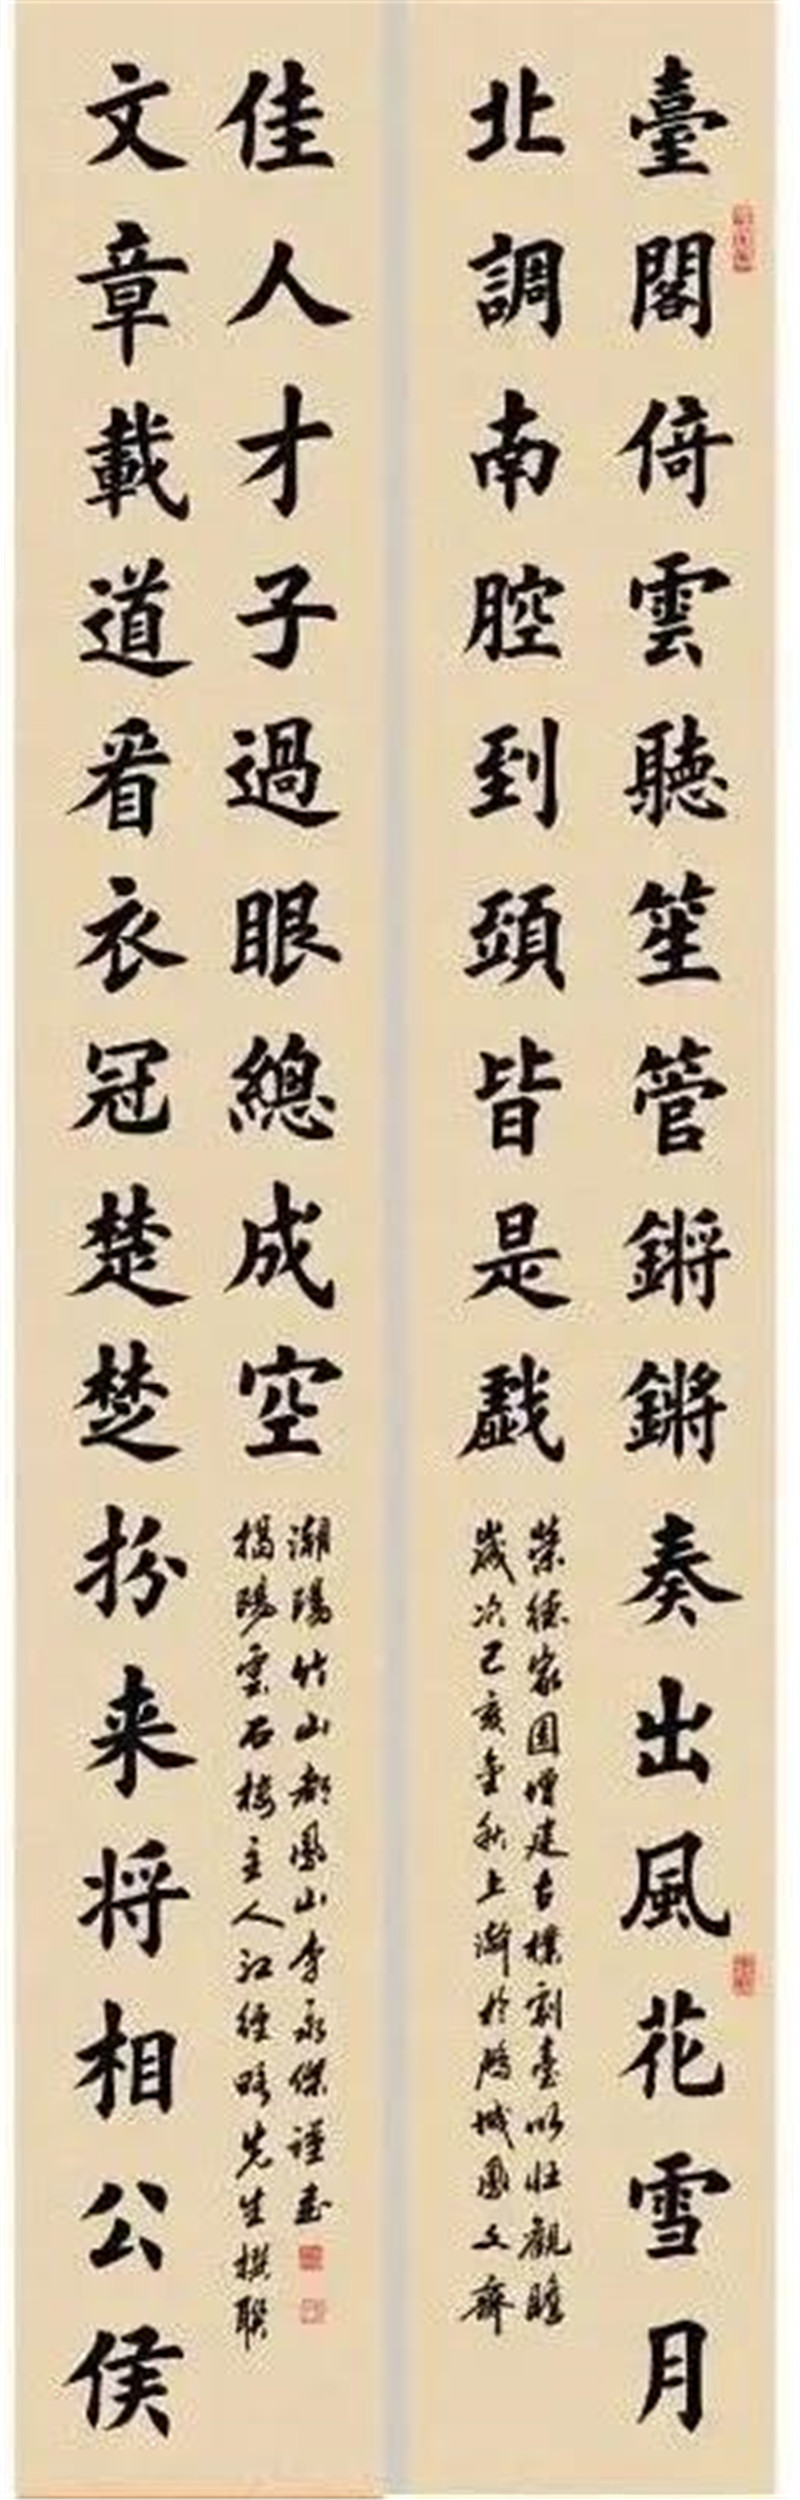 臺閣倚雲聽笙管鏘鏘奏出風花雪月
北調南腔到頭皆是戲
榮德家園增建古樸劇臺以壯觀瞻
歲次己亥金秋上澣於鵬城鳳文齋
文章載道看衣冠楚楚扮来将相公侯
佳人才子過眼總成空
揭陽雲石樓主人江經略先生撰聯
潮陽竹山都鳳山李永傑謹書